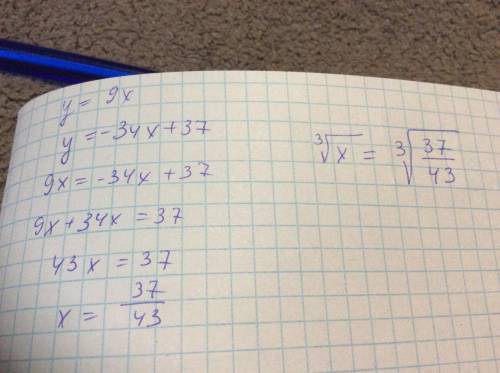 y = 9x
y = -34x + 37
9x = -34x + 37
9x + 34x = 37
43x = 37
x = 37/43
∛x = ∛(37/43)